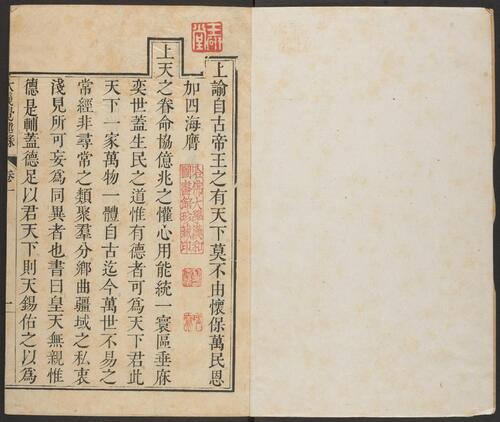 上諭自古帝王之有天下莫不由懷保萬民恩
加四海膺
上天之眷命協億兆之懽心用能統一寰區垂庥
奕世蓋生民之道惟有德者可為天下君此
天下一家萬物一體自古迄今萬世不易之
常經非尋常之類聚羣分鄉曲疆域之私衷
淺見所可妄為同異者也書曰皇天無親惟
德是輔蓋德足以君天下則天錫佑之以為
大義覺迷錄
卷一
一
哈佛大學漢和圖書館珍藏印